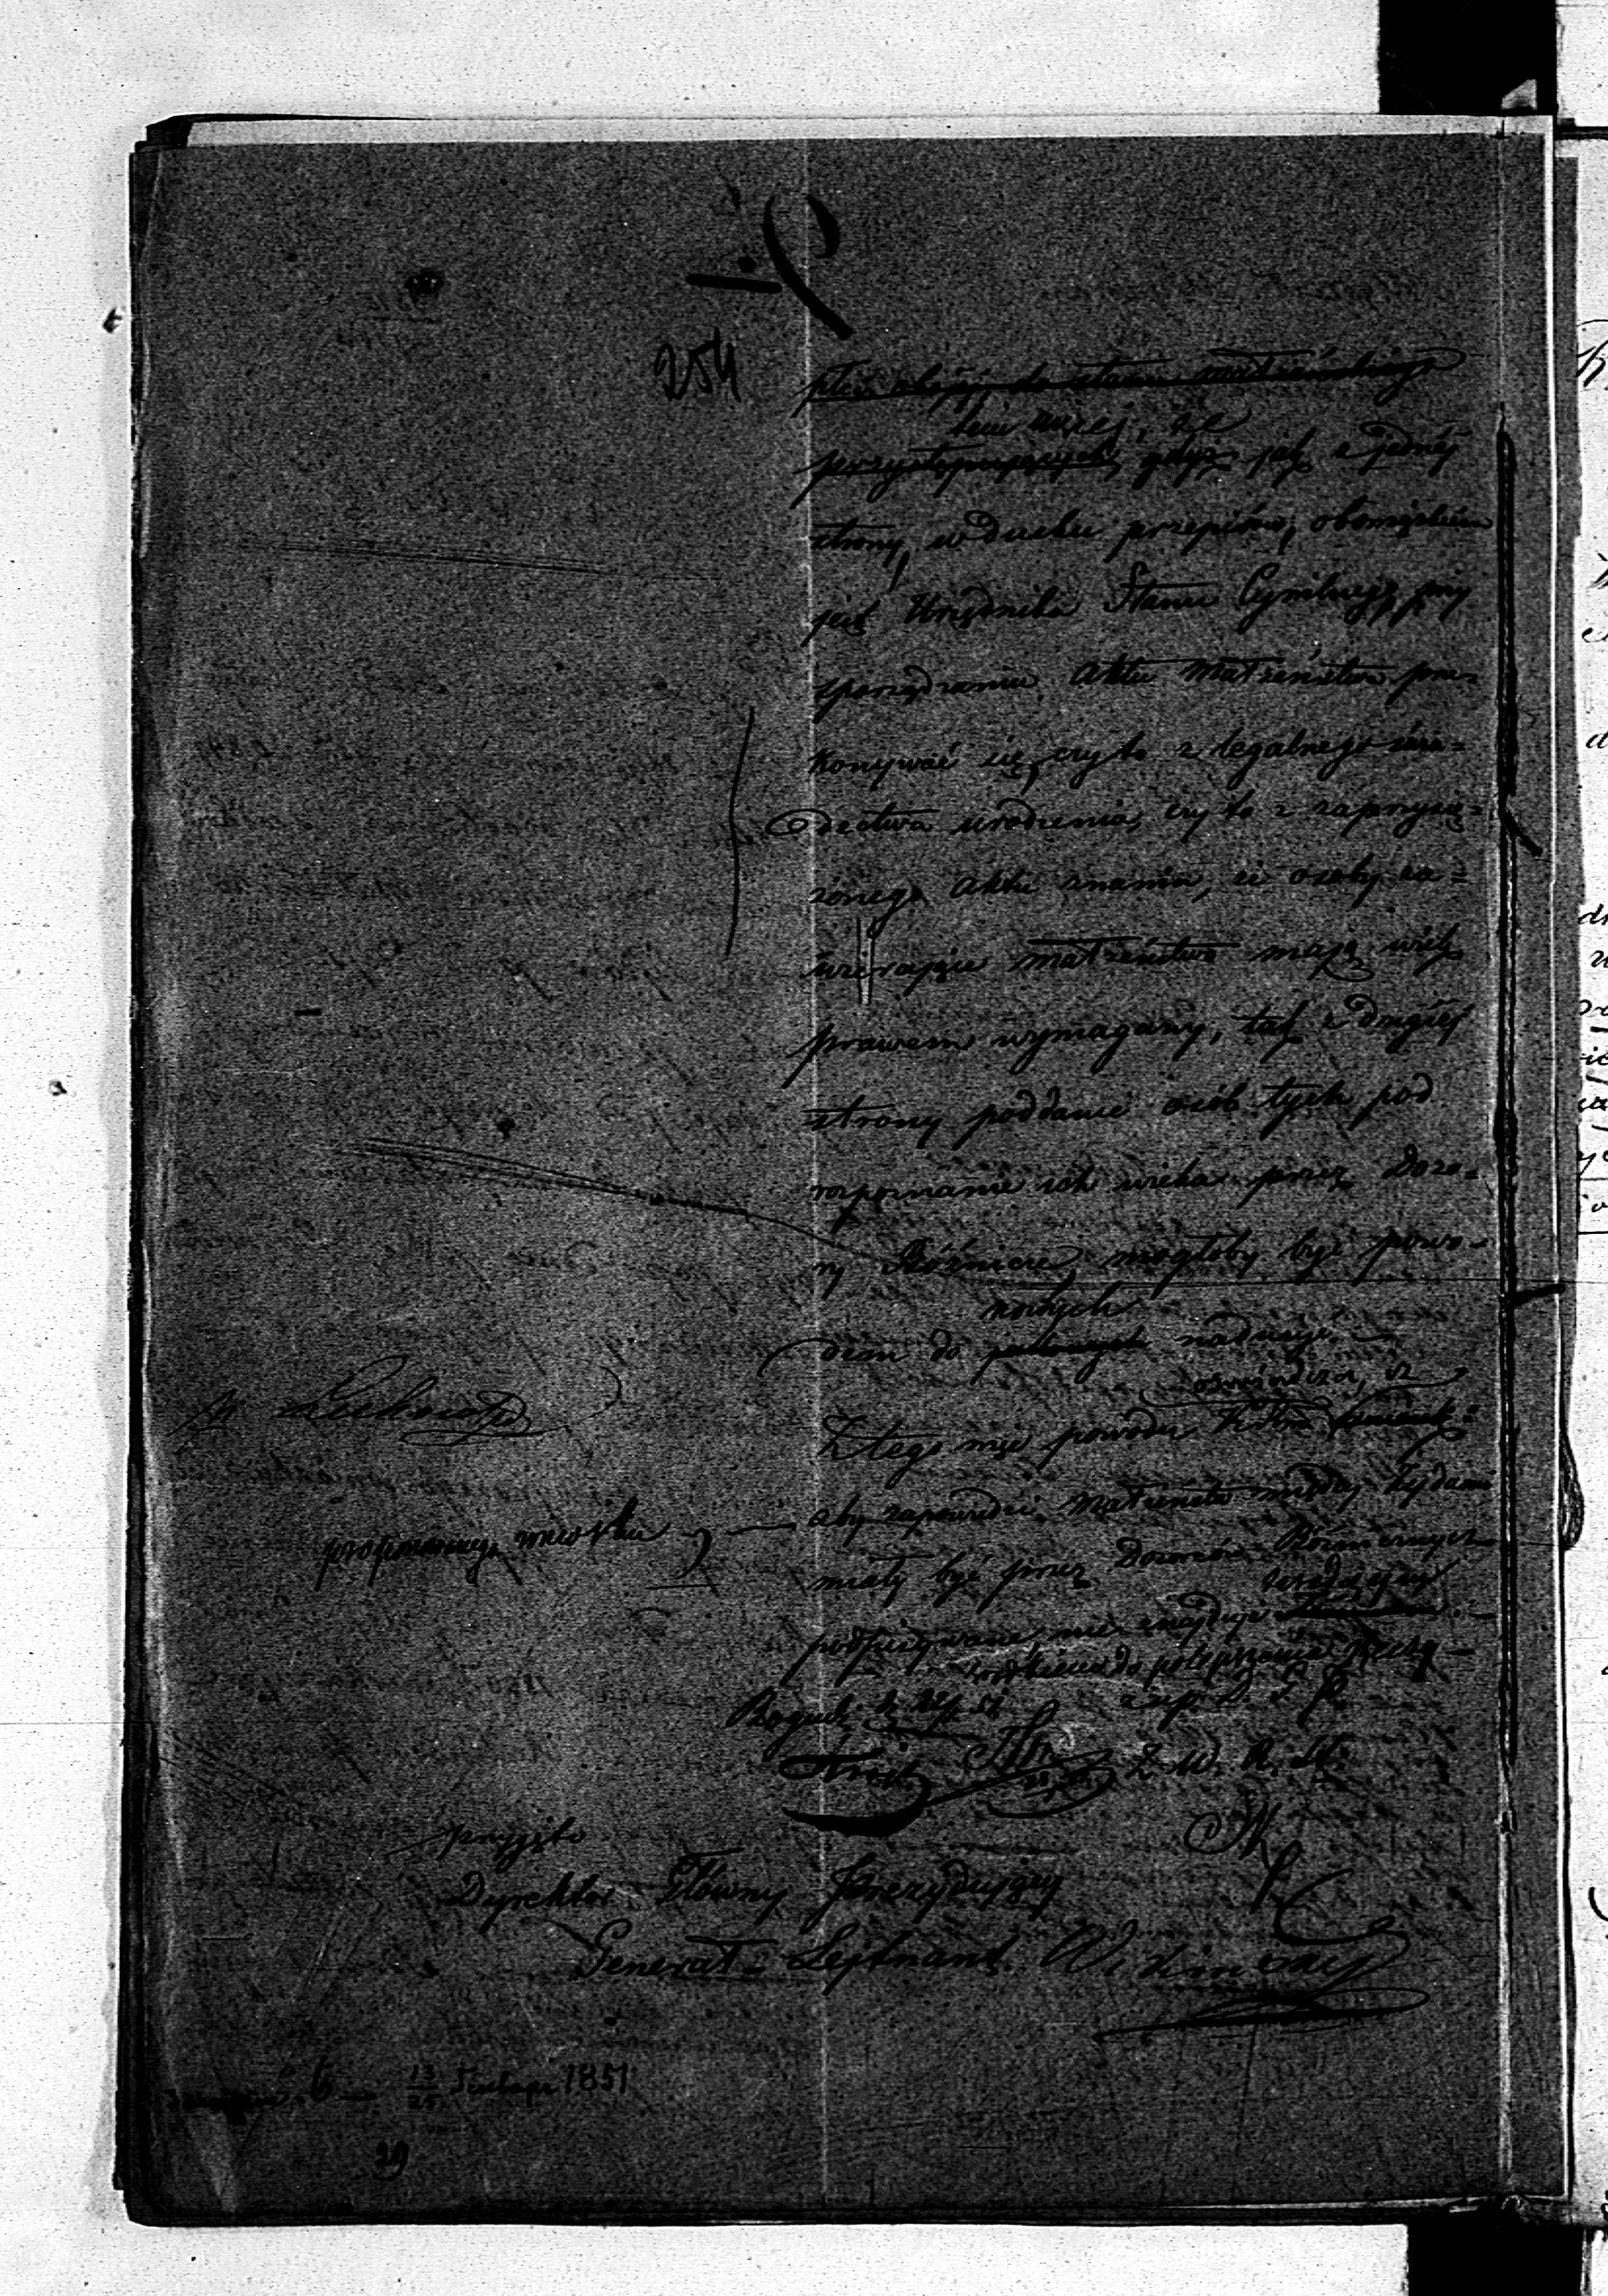 254
płci obojej do stanu małżeńskiego
tem więcej, że
przystępujących, gdyż jak z jednej
strony, w duchu przepisów, obowiązkiem
jest Urzędnika Stanu Cywilnego, przy
sporządzaniu aktu małżeństwa prze-
konywać się, czy to z legalnego świa-
dectwa urodzenia, czy to z zaprzysię-
żonego aktu znania, że osoby za-
wierające małżeństwo mają wiek
prawem wymagany, tak z drugiej
strony poddanie osób tych pod
rozpoznanie ich wieku przez Dozo-
ry Bóżnicze, mogłoby być powo-
nowych
dem do nadużyć.
oświadcza, iż
Z tego więc powodu
proponowanego wniosku
aby zapowiedzi małżeństw między Żydami
miały być przez Dozorców Bóżnicznych
podpisywane, nie znajduje
do polepszenia rzeczy
z up. D. G. P.
Z. W. R. St.
przyjęto
Dyrektor Główny Prezydujący
Generał-Lejtnant Wikiński
6 13/25 1851
29